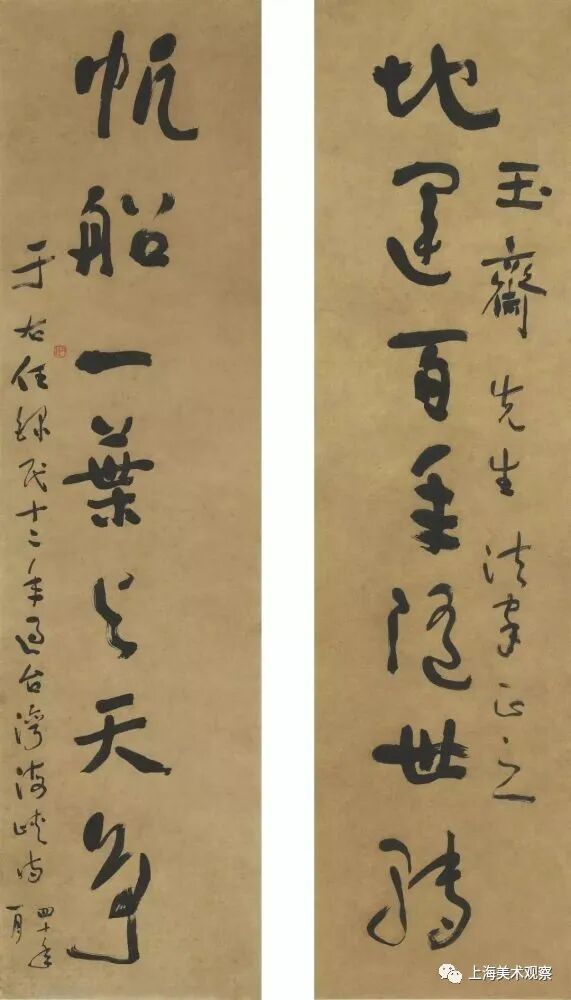 玉齋先生法家正之
地運百年隨世轉
帆船一葉與天爭
于右任錄民十二年過台灣海峽詩
四十年
一月
上海美术观察